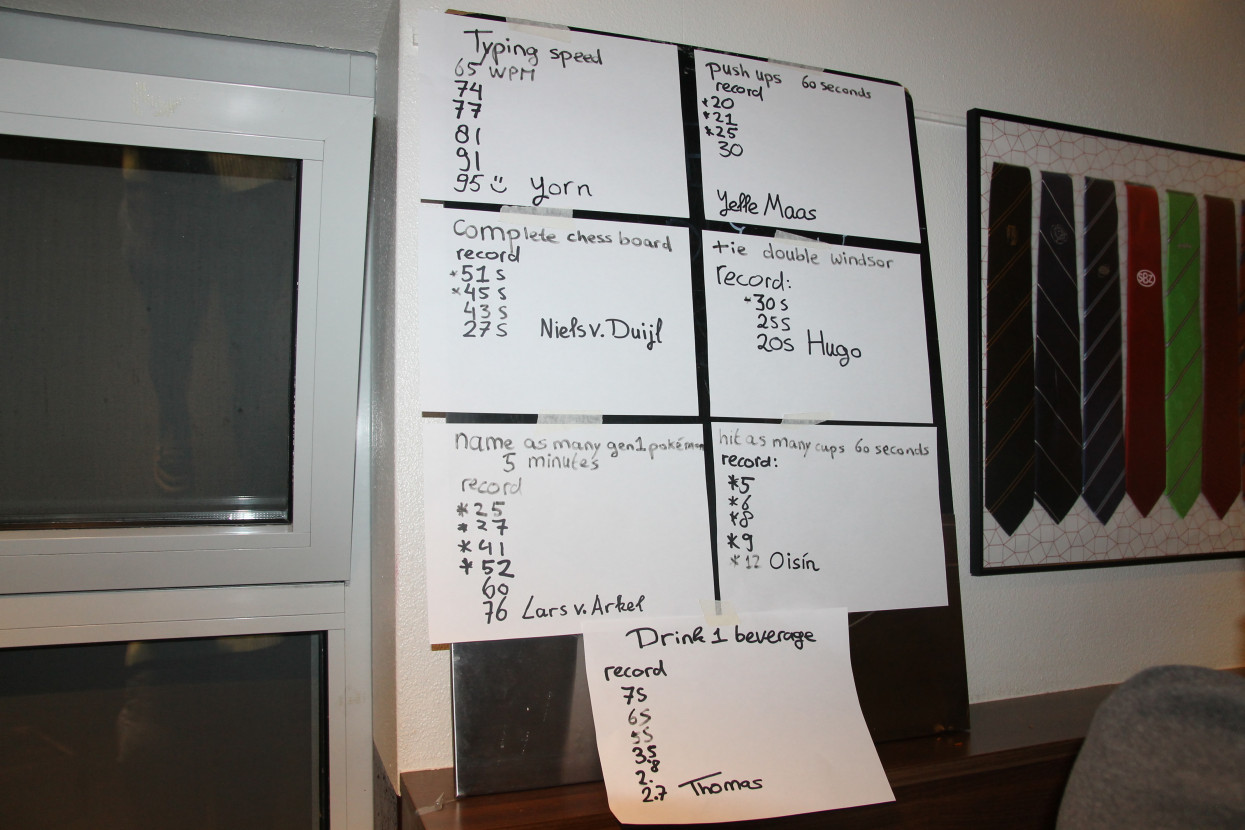 Typing speed
65 WPM
74
77
81
91
95 :) Yorn
push ups 60 seconds
record
*20
*21
*25
30
Yelle Maas
Complete chess board
record
*51 s
*45 s
43 s
27 s Niels v. Duijl
tie double windsor
record:
*30 s
25 s
20 s Hugo
name as many gen 1 pokémon
5 minutes
record
*25
*27
*41
*52
60
76 Lars v. Arkel
hit as many cups 60 seconds
record:
*5
*6
*8
*9
*12 Oisín
Drink 1 beverage
record
7s
6s
5s
3.5
2.8
2.7 Thomas
SBZ